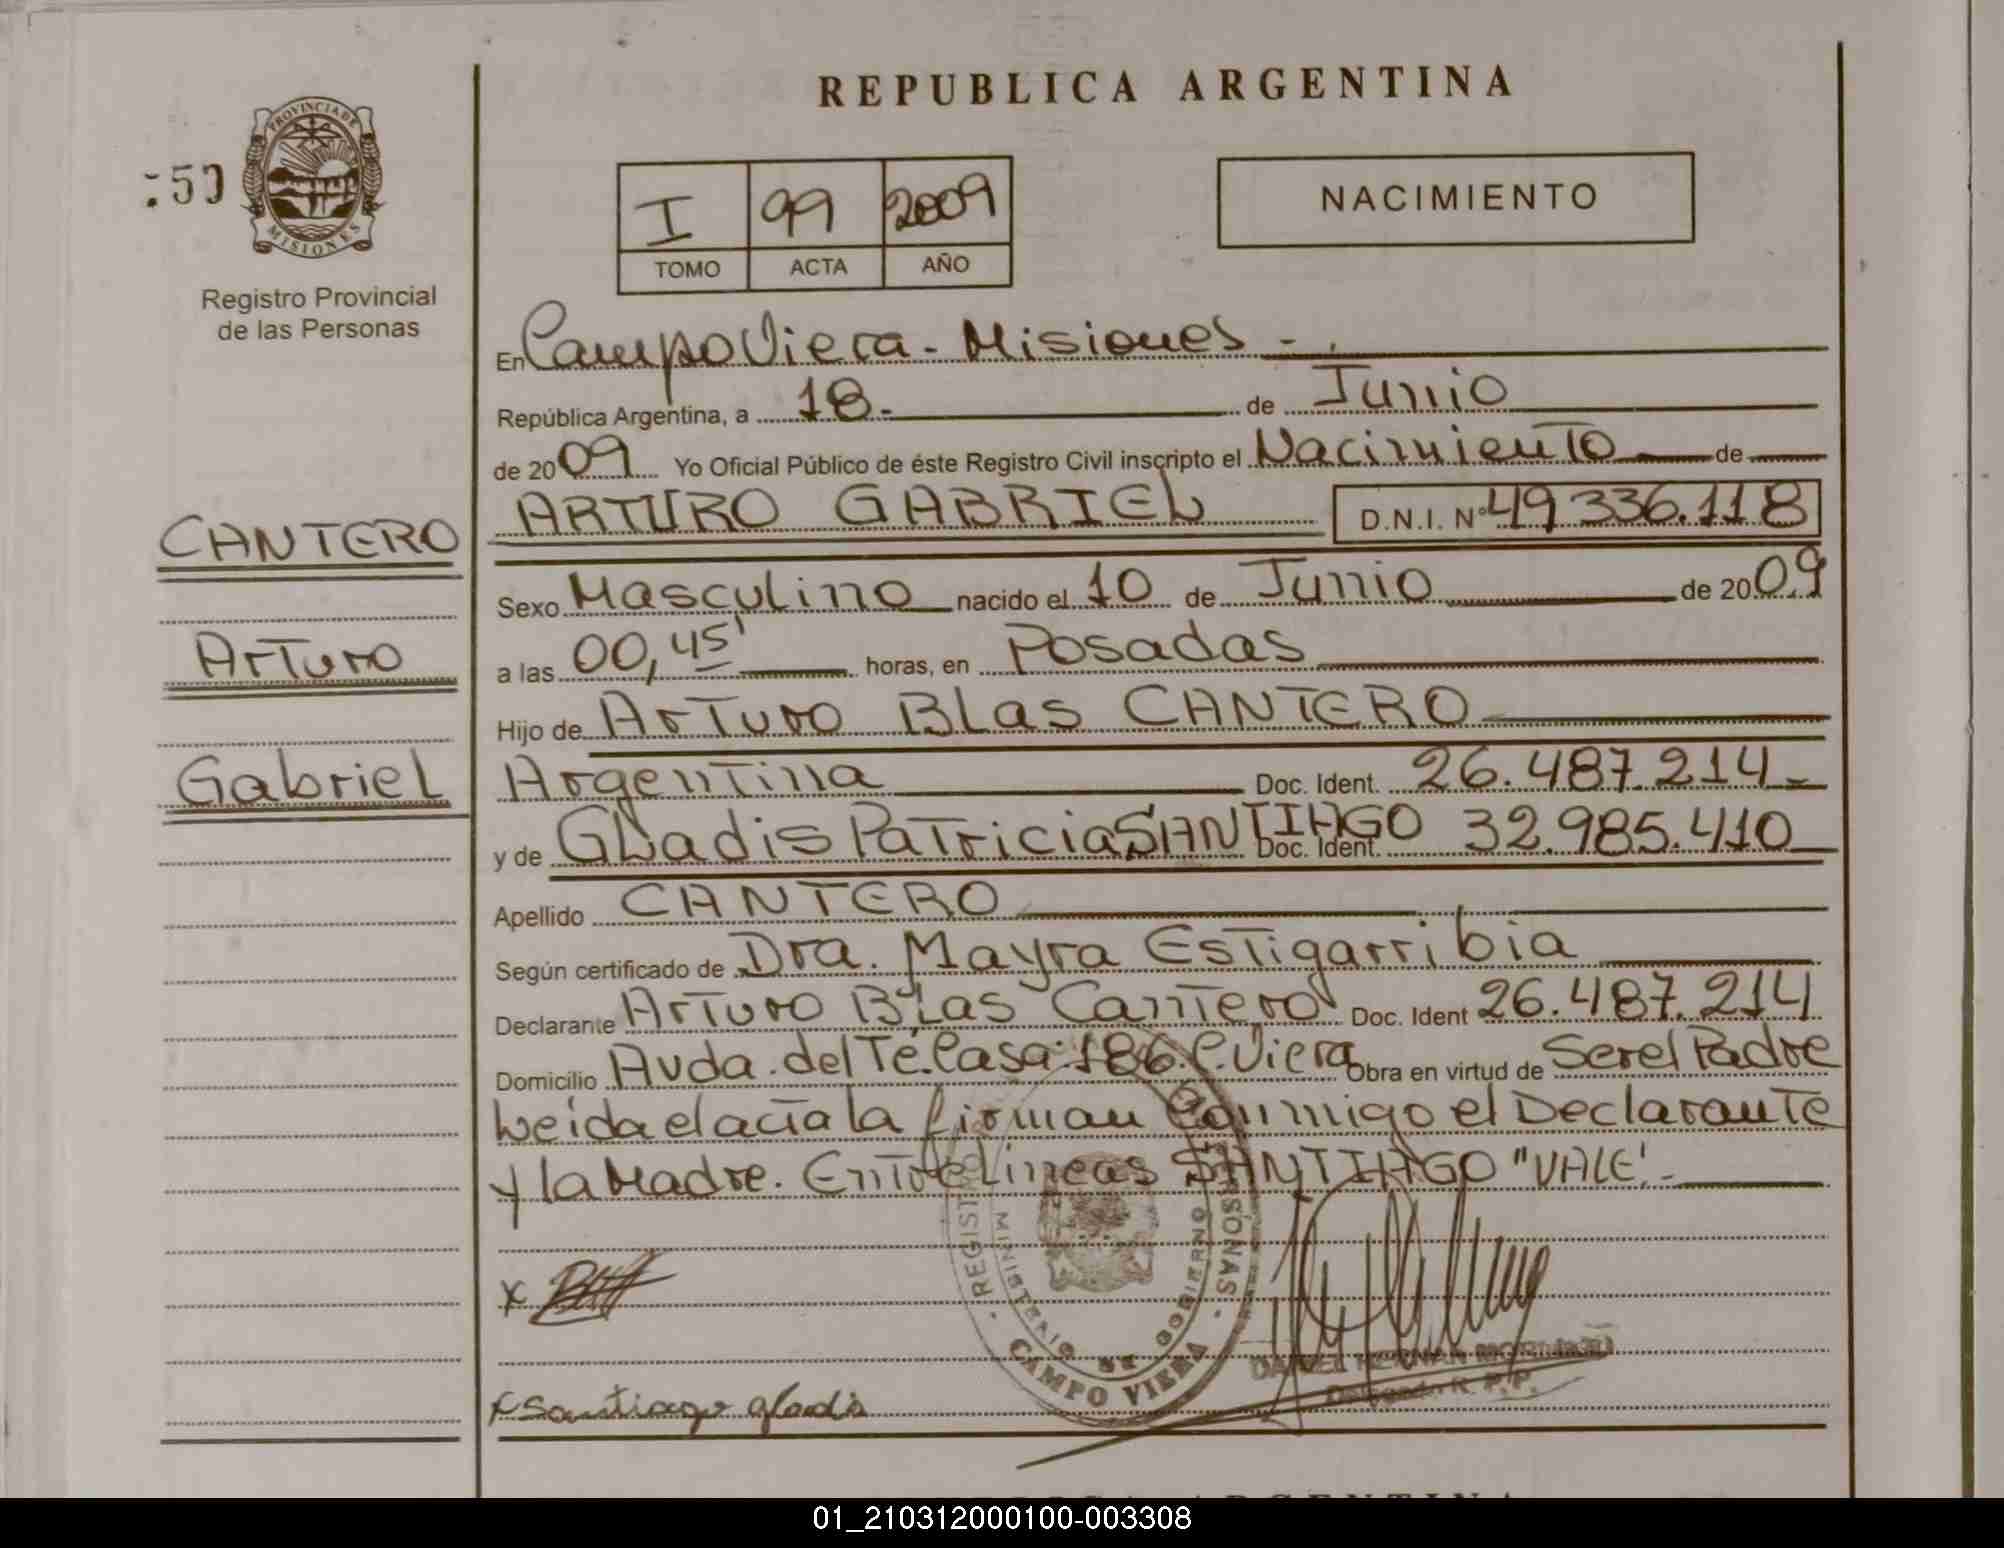 REPUBLICA ARGENTINA
PROVINCIA DE
MISIONES
:50
Registro Provincial
de las Personas
I 99 2009
TOMO ACTA AÑO
NACIMIENTO
En Campo Viera - Misiones - .
República Argentina, a 18- de Junio
de 2009 Yo Oficial Público de éste Registro Civil inscripto el Nacimiento de
ARTURO GABRIEL D.N.I. Nº 49 336.118
CANTERO
Sexo Masculino nacido el 10 de Junio de 2009
Arturo
a las 00,45' horas, en Posadas
Hijo de Arturo BLas CANTERO
Gabriel
Argentina Doc. Ident. 26.487.214-
y de GLadis Patricia SANTIAGO Doc. Ident. 32.985.410
Apellido CANTERO
Según certificado de Dra. Mayra Estigarribia
Declarante Arturo BLas Cantero Doc. Ident 26.487.214
Domicilio Avda. del Té. Casa: 186. C. Viera Obra en virtud de Ser el Padre
Leída el acta la firman Conmigo el Declarante
y la Madre. Entre Lineas SANTIAGO "VALE".-
REGISTRO PERSONAS
MINISTERIO DE GOBIERNO
CAMPO VIERA
x
x Santiago gladis
Delegado R. P. P.
01_210312000100-003308